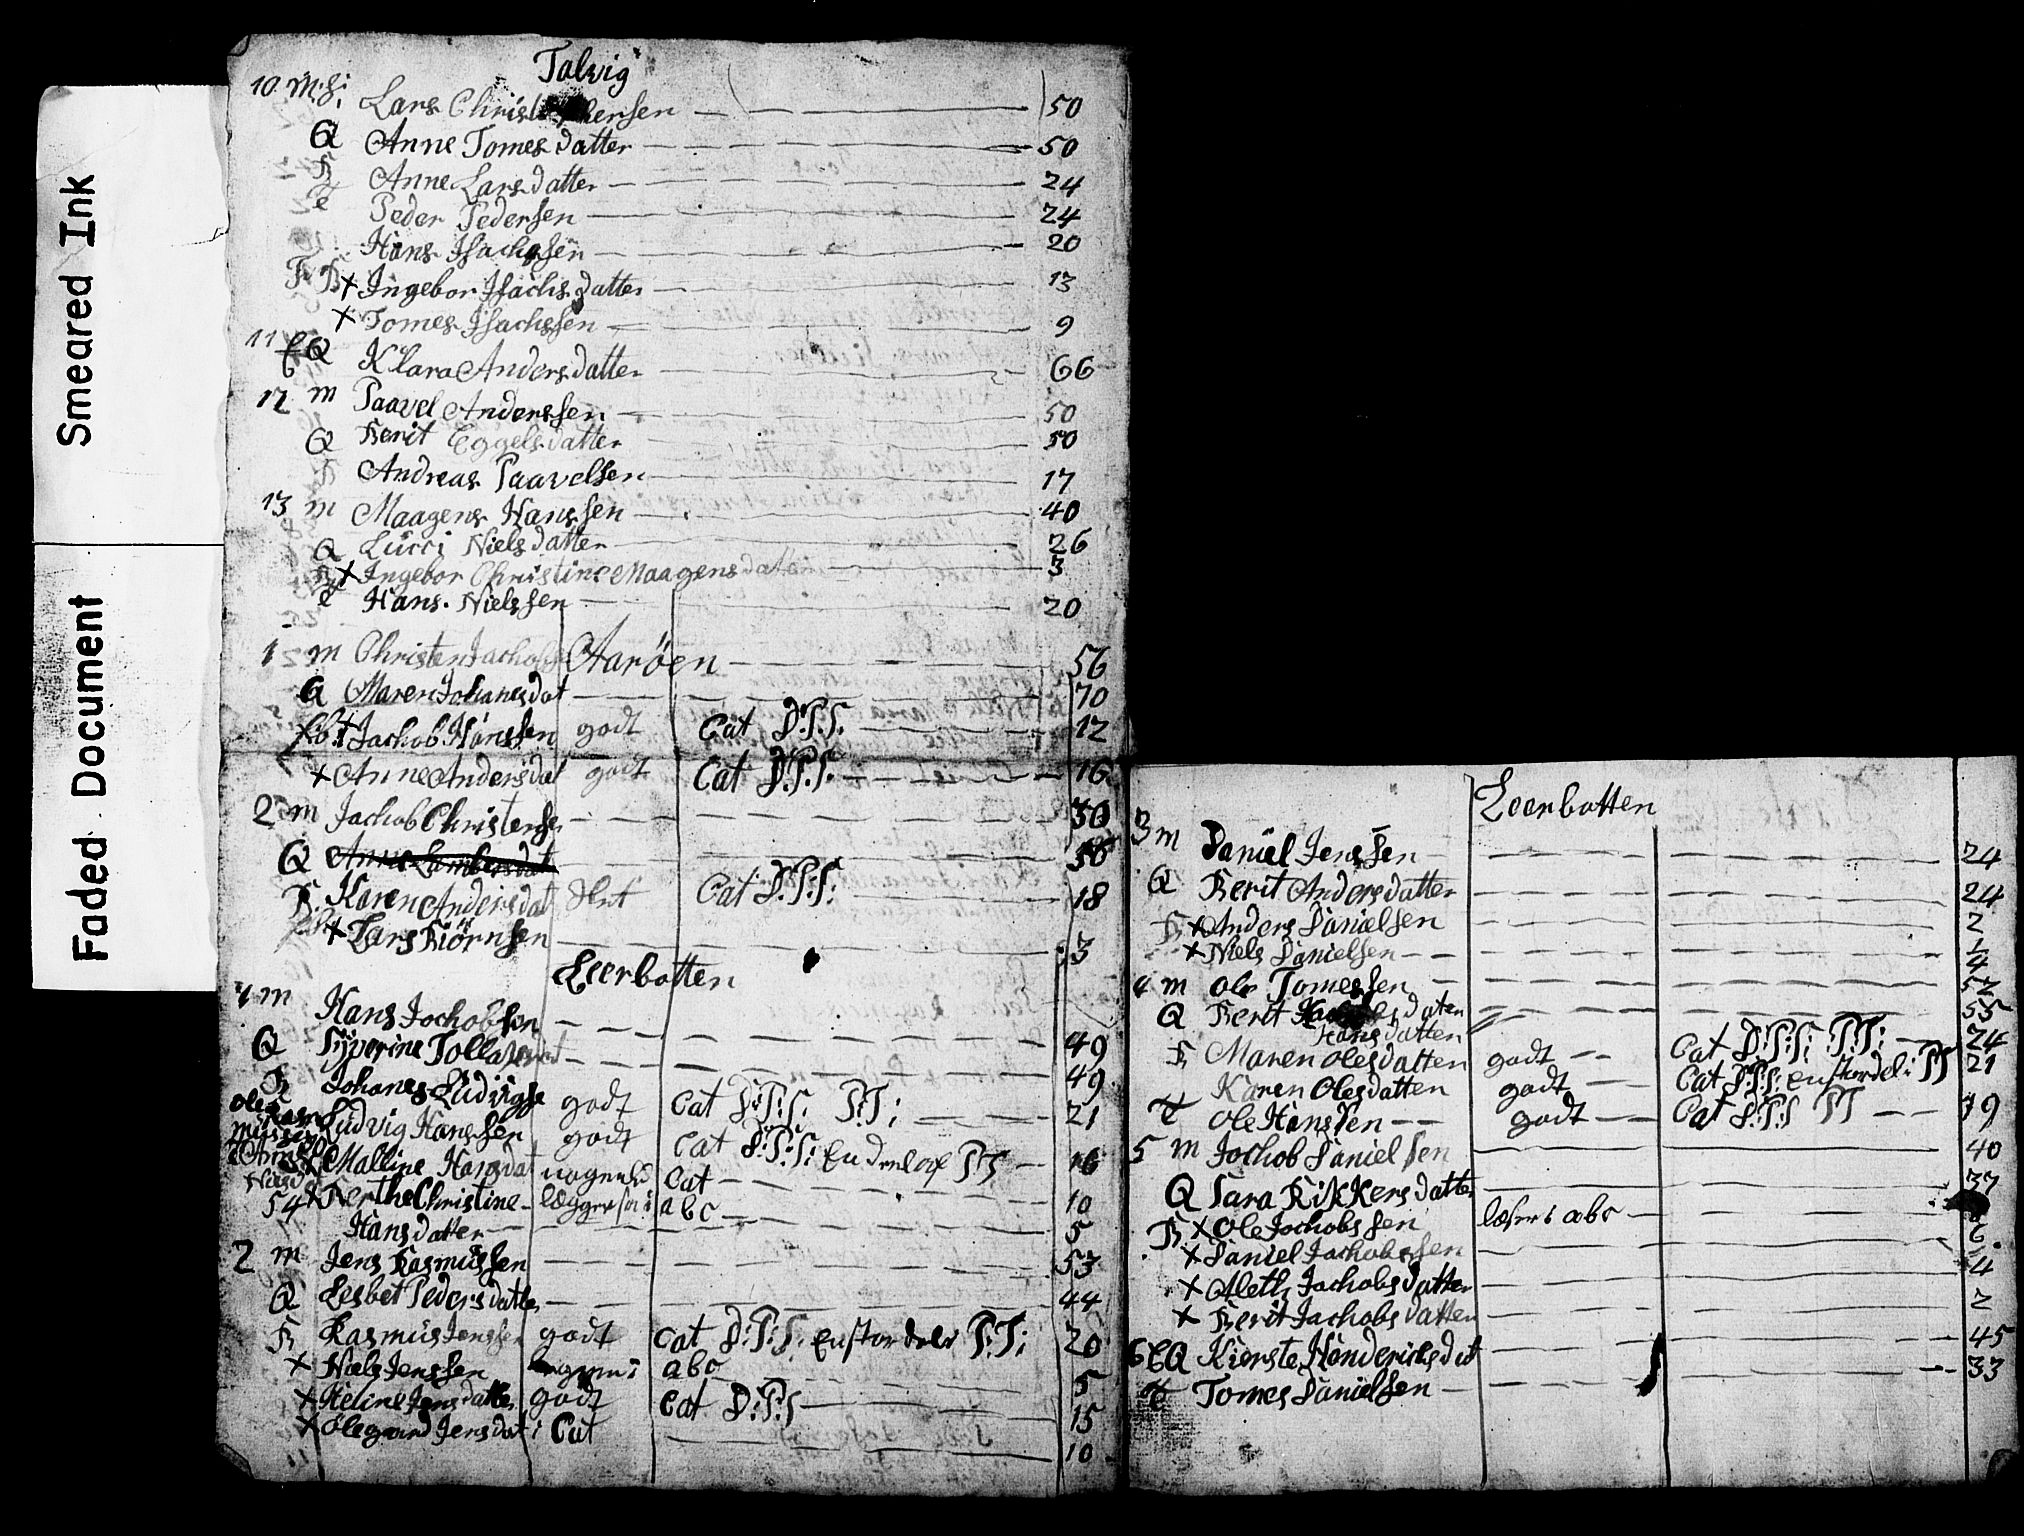 Smeared Ink
Faded Document
Talvig
10 M: Lars Christophersen 50
Q Anne Tomesdatter 50
B Anne Larsdatter 24
T Peder Pedersen 24
Hans Isachssen 20
F B x Ingebor Isachsdatter 13
x Tomes Isachssen 9
11 E Q Klara Andersdatter 66
12 m Paavel Anderssen 50
Q Berit Eggelsdatter 50
B Andreas Paavelsen 17
13 m Maagens Hanssen 40
Q Lücci Nielsdatter 26
B x Ingebor Christine Maagensdatter 3
T Hans Nielssen 20
Aarøen
1 m Christen Jachobs 56
Q Maren Johanesdat 70
x Jachob Hanssen godt Cat D:P:S: 12
x Anne Andersdat godt Cat D:P:S: 16
2 m Jachob Christensen 30
Q Anne Lambersdat
B Karen Andersdat Cat D:P:S: 18
x Lars Biørnsen 3
Leerbotten
1 m Hans Jochobsen 49
Q Syverine Tollavs 49
B Johanes Lüdvigse godt Cat D:P:S: P:T: 21
Lüdvig Hanssen godt Cat D:P:S: En deel af PT 16
x Malline Hansdat Cat 10
x Berthe Christine lægger i abc 5
Hansdatter
2 m Jens Rasmüssen 53
Q Lesbet Pedersdatter 44
B Rasmüs Jenssen godt Cat D:P:S: En stor deel P:T: 20
x Niels Jenssen abc 5
x Heline Jensdatter godt Cat D:P:S 15
x Olegaard Jensdat i Cat 10
Leerbotten
3 m Daniel Jenssen 24
Q Berit Andersdatter 24
B x Anders Danielsen 2
x Niels Danielsen
4 m Ole Tomessen
Q Berit 55
Hansdatter
B Maren Olesdatter godt Cat D:P:S: P:T: 24
Karen Olesdatter godt Cat D:P:S: En stor del i PT 21
T Ole Hansen godt Cat D:P:S PT 19
5 m Jochob Danielsen 40
Q Sara Rikkersdatter 37
B x Ole Jochobssen læser i abc
x Daniel Jachobssen 6
x Aleth Jachobsdatter 4
x Berit Jachobsdatter 2
6 E Q Kierste Hendrichsdat 45
T Tomes Danielsen 33